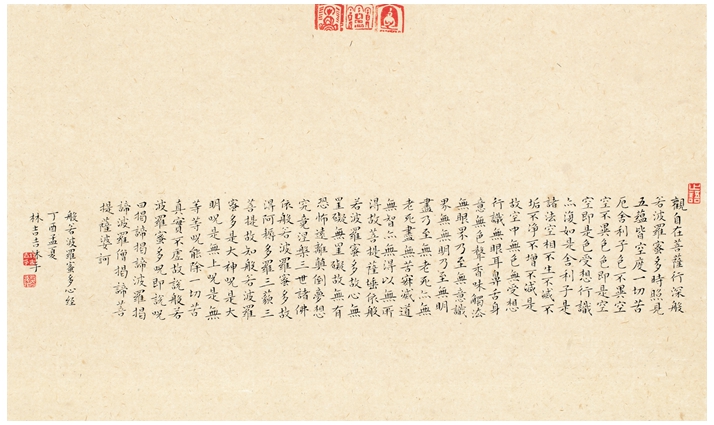 觀自在菩薩行深般
若波羅蜜多時照見
五蘊皆空度一切苦
厄舍利子色不異空
空不異色色即是空
空即是色受想行識
亦復如是舍利子是
諸法空相不生不滅不
垢不淨不增不減是
故空中無色無受想
行識無眼耳鼻舌身
意無色聲香味觸法
無眼界乃至無意識
界無無明乃至無明
盡乃至無老死亦無
老死盡無苦寂滅道
無智亦無得以無所
得故菩提薩埵依般
若波羅蜜多故心無
罣礙無罣礙故無有
恐怖遠離顛倒夢想
究竟涅槃三世諸佛
依般若波羅蜜多故
得阿耨多羅三藐三
菩提故知般若波羅
蜜多是大神呪是大
明呪是無上呪是無
等等呪能除一切苦
真實不虛故說般若
波羅蜜多呪即說呪
曰揭諦揭諦波羅揭
諦波羅僧揭諦菩
提薩婆訶
般若波羅蜜多心經
丁酉孟夏
林吉吉沐手